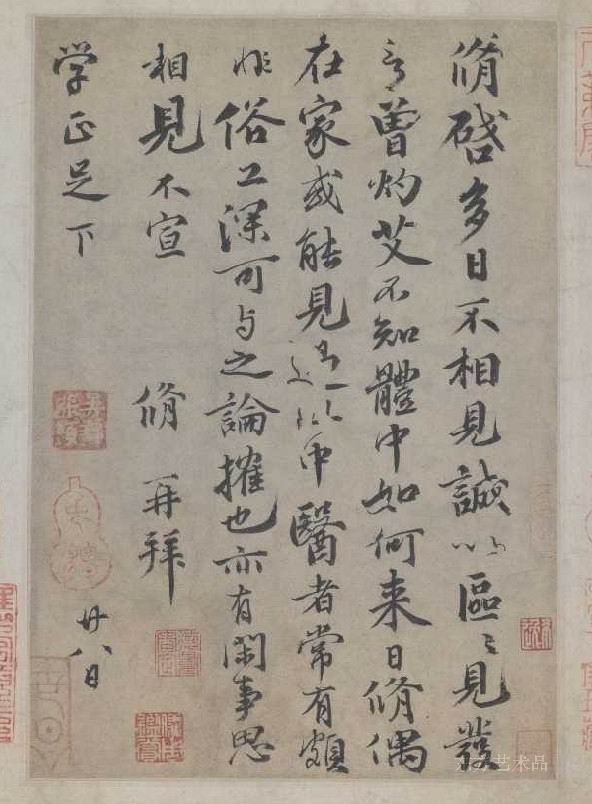 脩啓多日不相見誠以區〻見發
言曾灼艾不知體中如何来日脩偶
在家或能見過此中醫者常有頗
非俗工深可与之論搉也亦有閑事思
相見不宣 脩再拜
学正足下 廿八日
艺术品